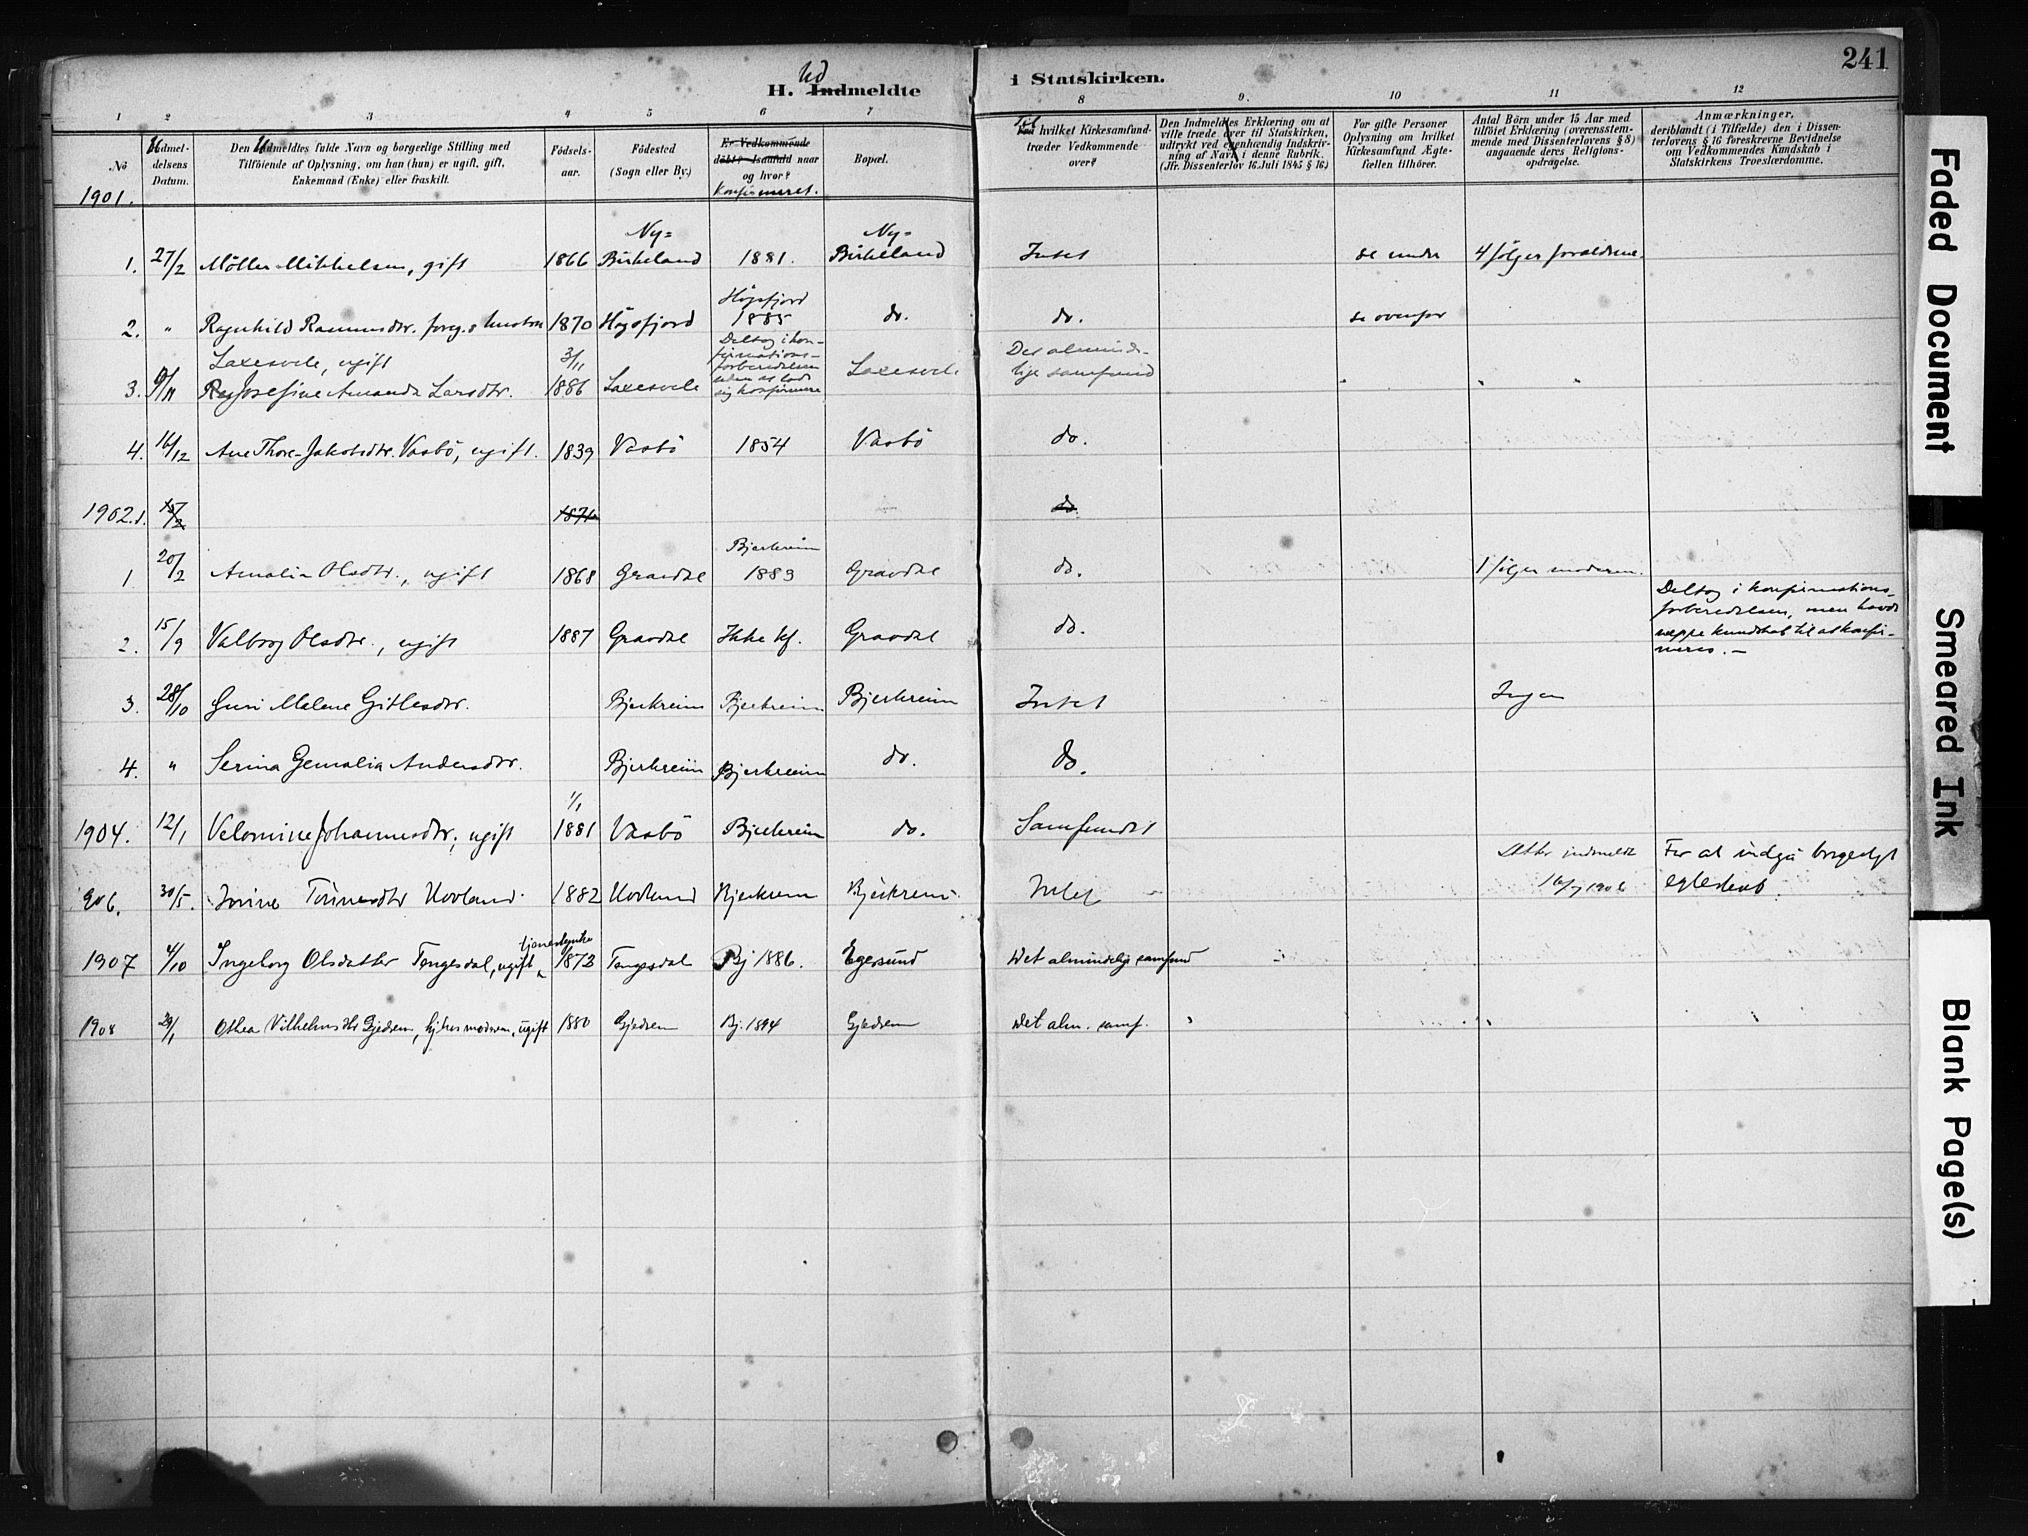 241
H. Indmeldte Ud i Statskirken.
1 2 3 4 5 6 7 8 9. 10 11 12
No
Udmeldelsens Datum.
Den Udmeldtes fulde Navn og borgerlige Stilling med
Tilföiende af Oplysning, om han (hun) er ugift, gift,
Enkemand (Enke) eller fraskilt.
Födsels-
aar.
Födested
(Sogn eller By.)
Er Vedkommende
döbt? Isaafald naar
og hvor?
Konfirmeret.
Bopæl.
Til hvilket Kirkesamfund
træder Vedkommende
over?
Den Indmeldtes Erklæring om at
ville træde over til Statskirken,
udtrykt ved egenhændig Indskriv-
ning af Navn i denne Rubrik.
(Jfr. Dissenterlov 16. Juli 1845 § 16)
For gifte Personer
Oplysning om hvilket
Kirkesamfund Ægte-
fællen tilhörer.
Antal Börn under 15 Aar med
tilföiet Erklæring (overensstem-
mende med Dissenterlovens § 8)
angaaende deres Religions-
opdragelse.
Anmærkninger,
deriblandt (i Tilfælde) den i Dissen-
terlovens § 16 foreskrevne Bevidnelse
om Vedkommendes Kundskab i
Statskirkens Troeslærdomme.
1901.
1. 27/2 Møller Mikkelsen, gift 1866 Ny=Birkeland 1881. Ny=Birkeland Intet se under 4 følger forældrene.
2. " Ragnhild Rasmusdtr. foreg.s hustru 1870 Högsfjord Högsfjord 1885 do. do. se ovenfor
3. 9/11 Laxesvele, ugift Josefine Amanda Larsdtr. 3/11 1886 Laxesvele Deltog i kon-
firmations-
forberedelsen
uden at lade
sig konfirmere Laxesvele Det alminde-
lige samfund " " "
4. 16/12 Ane Thore Jakobsdtr. Vasbö, ugift. 1839 Vasbö 1854 Vasbö do.
1902. 1. 15/2 1871 do.
1 20/2 Amalia Olsdtr., ugift 1868 Gravdal Bjerkreim 1883 Gravdal do. 1 følger moderen.
2. 15/9 Valborg Olsdtr., ugift 1887 Gravdal Ikke kf. Gravdal do. Deltog i konfirmations-
forberedelsen, men havde
neppe kundskab til at konfir-
meres. -
3. 28/10 Guri Malene Gitlesdtr. Bjerkreim Bjerkreim Bjerkreim Intet Ingen
4. " Serina Gemalia Andersdtr. Bjerkreim Bjerkreim do. Do.
1904. 12/1 Velomine Johannesdtr., ugift 1/1 1881 Vasbö Bjerkreim do. Samfundet
906. 30/5. Torine Tönnesdtr Hovland 1882 Hovland Bjerkrem Bjerkrem Intet Atter indmeldt
16/7 1906 For at indgå borgerligt
egteskab.
1907 4/10 Ingeborg Olsdatter Tengesdal, ugift, tjenestepike 1873 Tengesdal Bj 1886. Egersund Det almindelig samfund
1908 29/1 Othea Vilhelmsdtr Gjedrem, hj. hos moderen, ugift 1880 Gjedrem Bj. 1894 Gjedrem Det alm. samf. " " "
Faded Document
Smeared Ink
Blank Page(s)